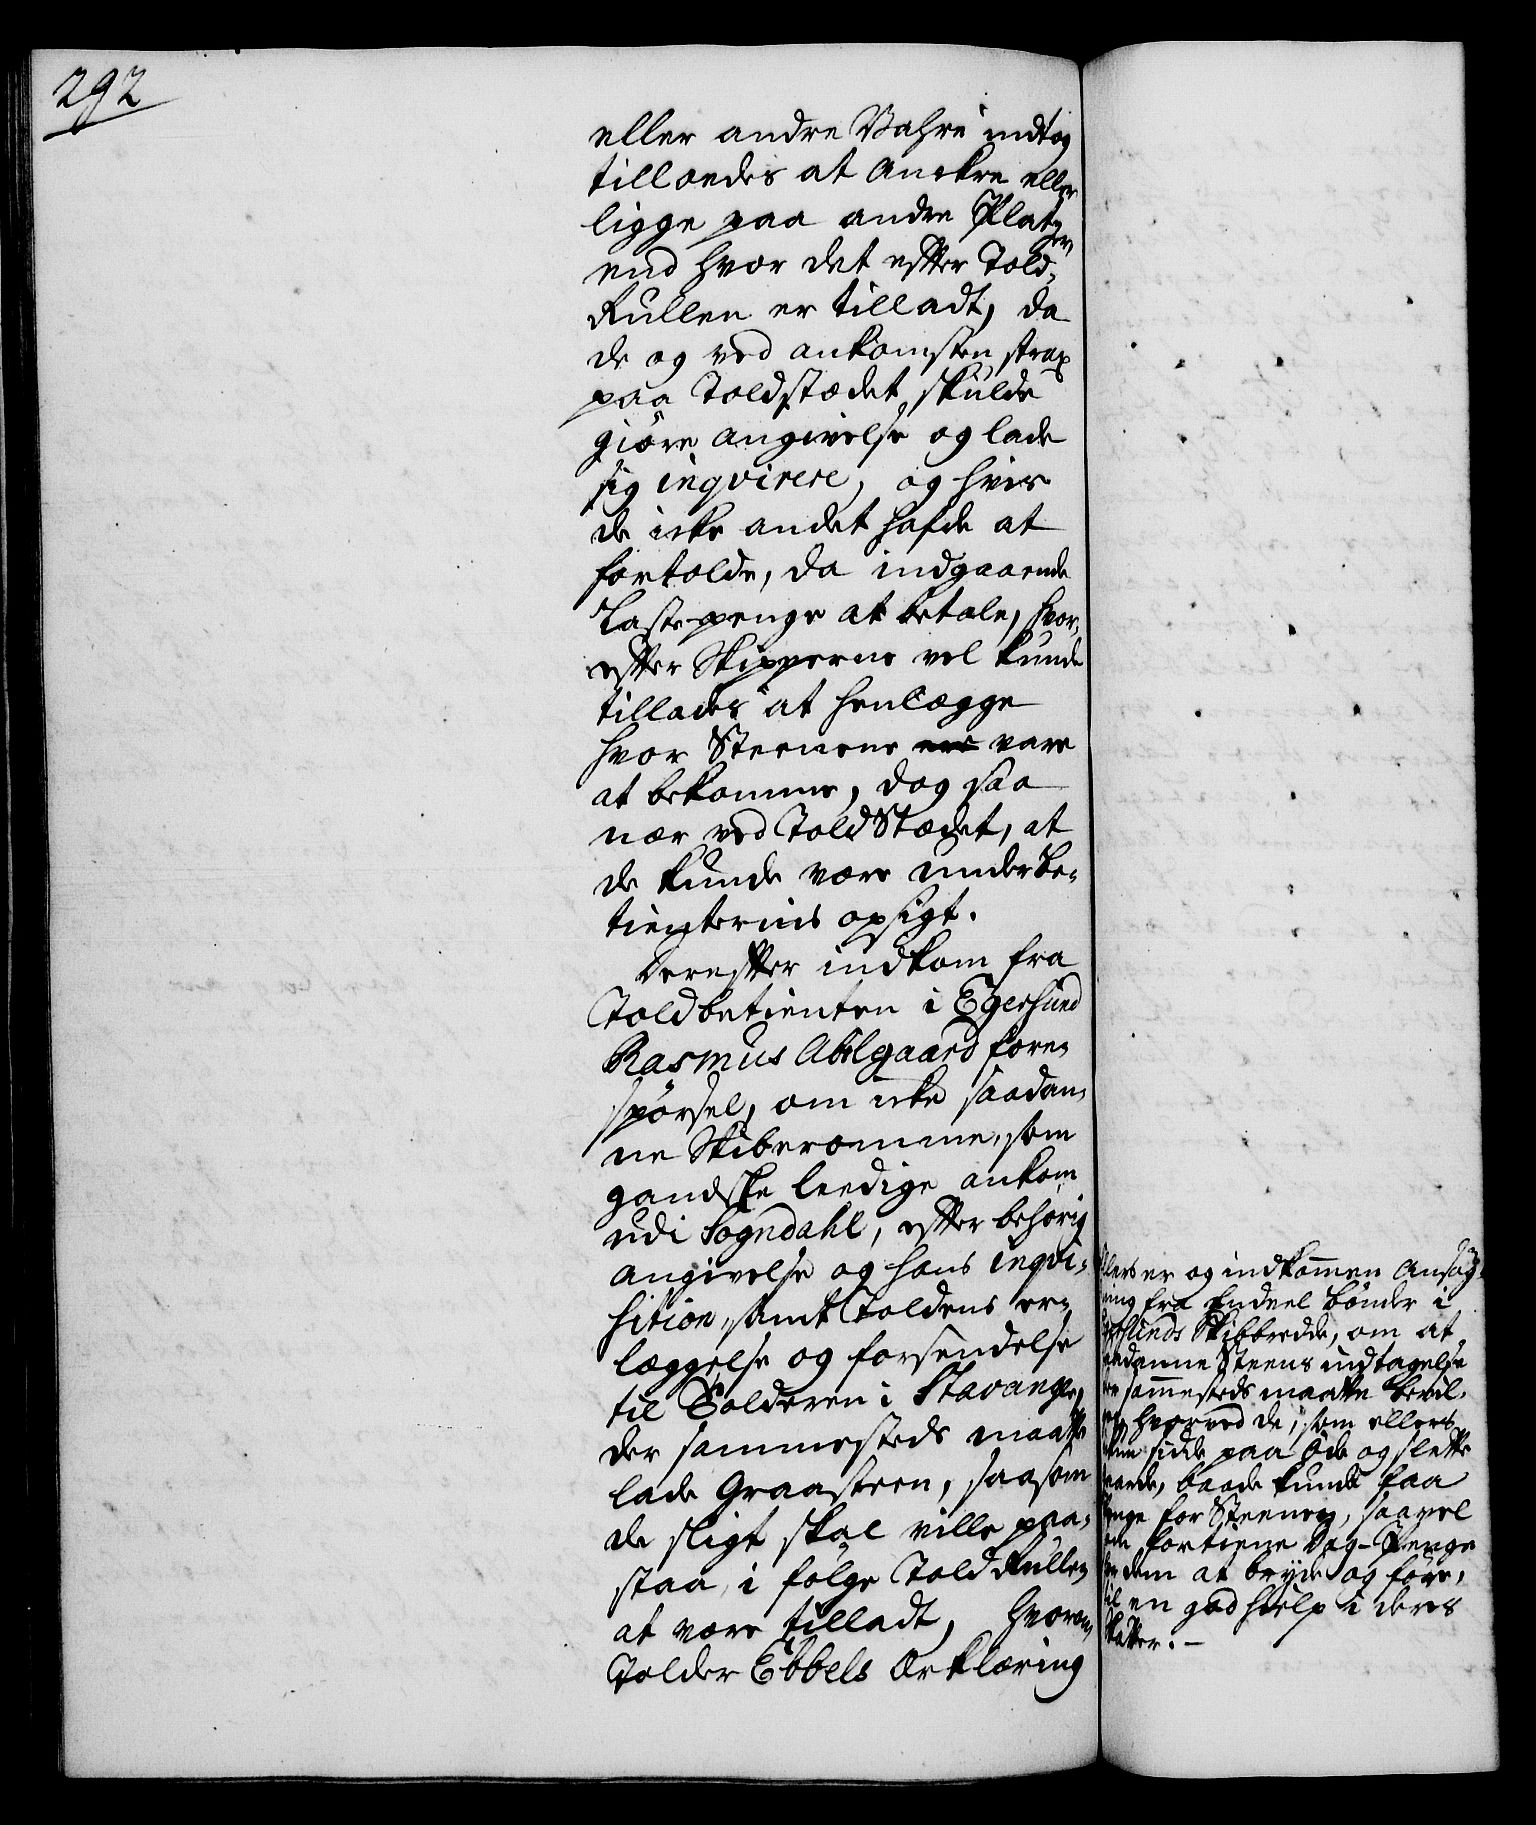 292
eller andre Vahre indtog
tilloedes at Anckre eller
ligge paa andre Platzer,
end hvor det efter Told-
Rullen er tilladt, da
de og ved ankomsten strax
paa Toldstædet skulde
giöre angivelse og lade
sig inqvirere, og hvis
de icke andet hafde at
fortolde, da indgaaende
Lastepenge at betale, hvor-
efter Skipperne vel kunde
tillades at henlægge
hvor Steenene ere vare
at bekomme, dog saa
nær ved Told Stædet, at
de kunde være under Be-
tienternis opsigt.
Derefter indkom fra
Toldbetienten i Egersund
Rasmus Abilgaard fore-
spörsel, om icke saadan-
ne Skiberomme, som
gandske leedige ankom
udi Sogndahl, efter behörig
angivelse og hans inqvi-
sition, samt Toldens er-
læggelse og forsendelse
til Tolderen i Stavanger,
der sammesteds maatte
lade Graasteen, saasom
de sligt skal ville paa-
staa, i fölge Told Rullen
at være tilladt, hvorom
Tolder Ebbels Erklæring
er og indkommen Ansög-
fra Endeel bönder i
Skibbredde, om at
Steens indtagelse
sammesteds maatte bevil-
hvorved de, som ellers
sidde paa öde og slette
baade kunde faa
for Steenen, saavel
fortiene Dag-Penge
dem at bryde og före,
en god hielp i deres